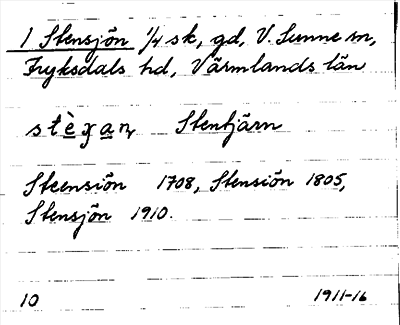 1 Stensjön ¼ sk, gd, V. Sunne sn,
Fryksdals hd, Värmlands län
Stentjärn
Steensiön 1708, Stensiön 1805,
Stensjön 1910.
10 1911-16